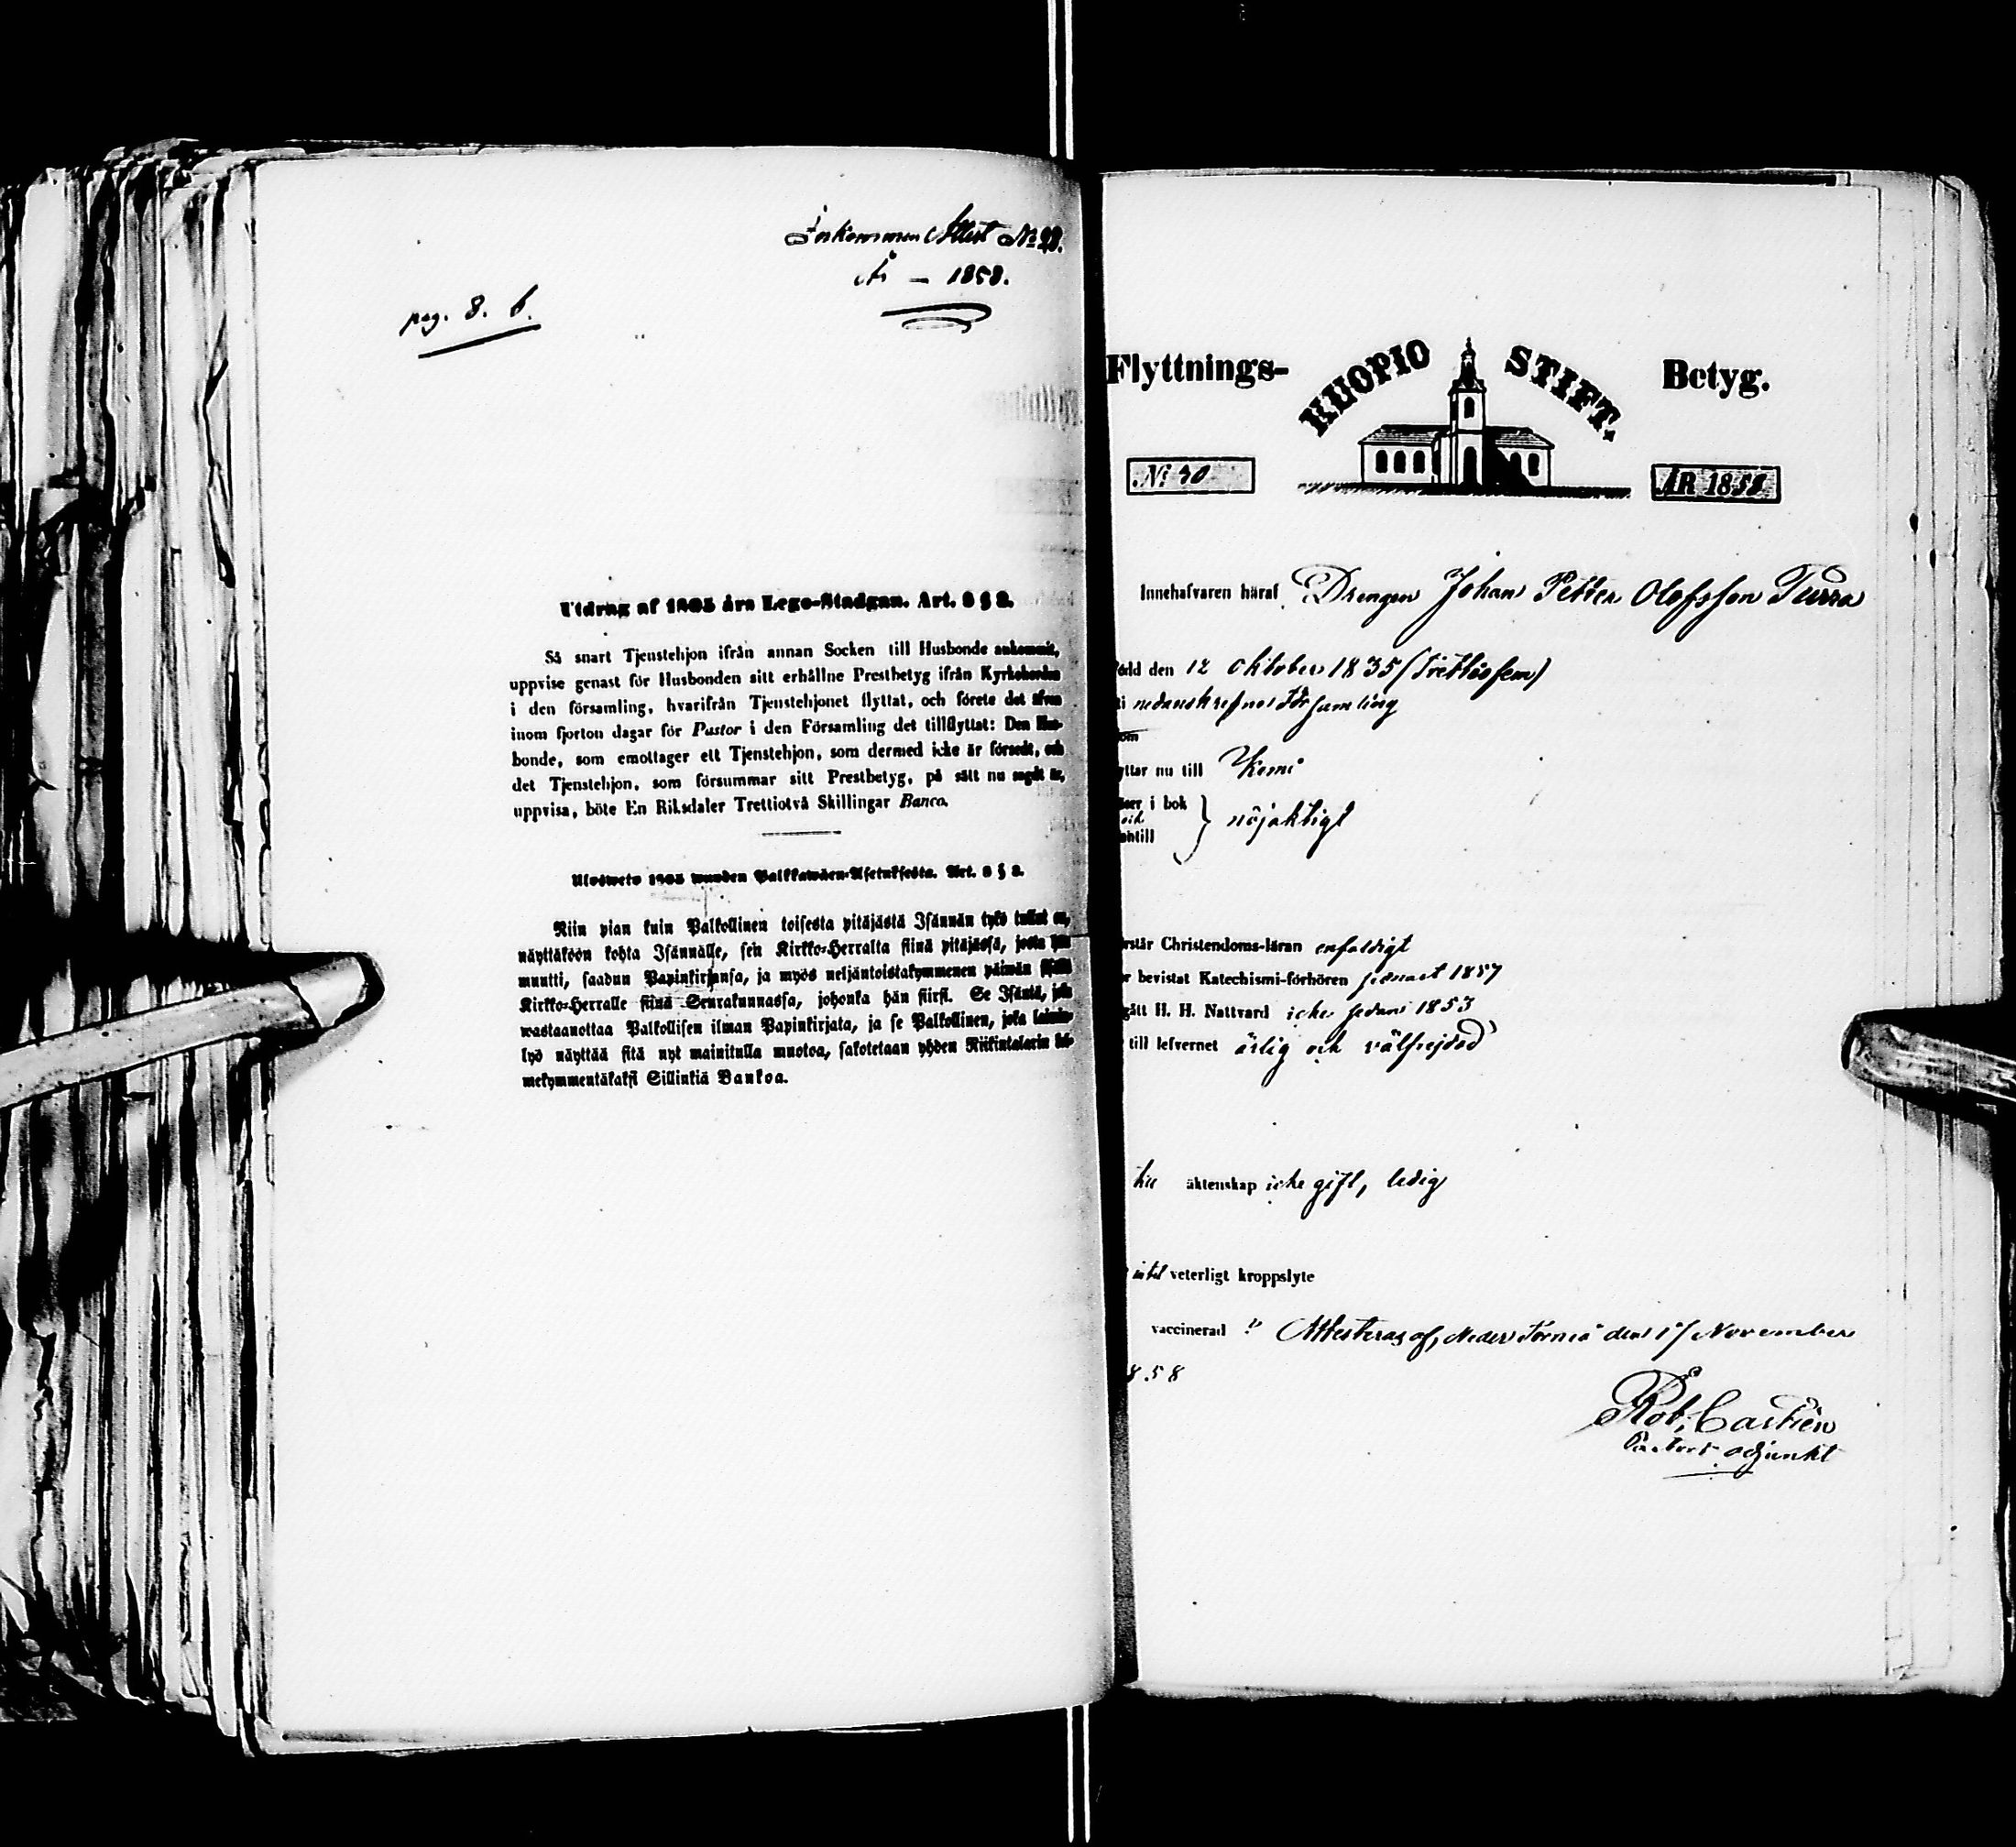 Inkommen Attest No 28.
År – 1858.
pag. 8. b.
Utdrag af 1805 års Lego-Stadgan. Art. 8 § 8.
Så snart Tjenstehjon ifrån annan Socken till Husbonde ankommit,
uppvise genast för Husbonden sitt erhållne Prestbetyg ifrån Kyrkoherden
i den församling, hvarifrån Tjenstehjonet flyttat, och förete det äfven
inom fjorton dagar för Pastor i den Församling det tillflyttat: Den Hus-
bonde, som emottager ett Tjenstehjon, som dermed icke är försedt, och
det Tjenstehjon, som försummar sitt Prestbetyg, på sätt nu sagdt är,
uppvisa, böte En Riksdaler Trettiotvå Skillingar Banco.
Ulosweto 1805 wuoden Palkkawäen-Asetuksesta. Art. 8 § 8.
Niin pian kuin Palkollinen toisesta pitäjästä Isännän tykö tullut on,
näyttäköön kohta Isännälle, sen Kirkko-Herralta siinä pitäjässä, josta hän
muutti, saadun Papinkirjansa, ja myös neljäntoistakymmenen päiwän sisällä
Kirkko-Herralle siinä Seurakunnassa, johonka hän siirsi. Se Isäntä, joka
wastaanottaa Palkollisen ilman Papinkirjata, ja se Palkollinen, joka laimin-
lyö näyttää sitä nyt mainitulla muotoa, sakotetaan yhden Riikintalarin kol-
mekymmentäkaksi Sillinkiä Bankoa.
Flyttnings- KUOPIO STIFT. Betyg.
No 40 ÅR 1858
Innehafvaren häraf Drengen Johan Petter Olofsson Purra
född den 12 Oktober 1835 (Trettiofem)
i nedanskrefne Församling
som
yttar nu till Kemi
äser i bok
och
antill } nöjaktigt
rstår Christendoms-läran enfaldigt
r bevistat Katechismi-förhören senast 1857
gått H. H. Nattvard icke sedan 1853
till lefvernet ärlig och välfrejdad
till äktenskap icke gift, ledig
intet veterligt kroppslyte
vaccinerad Attesteras af, Neder Torneå den 17 November
858
Rob. Castrén
Pastors adjunkt